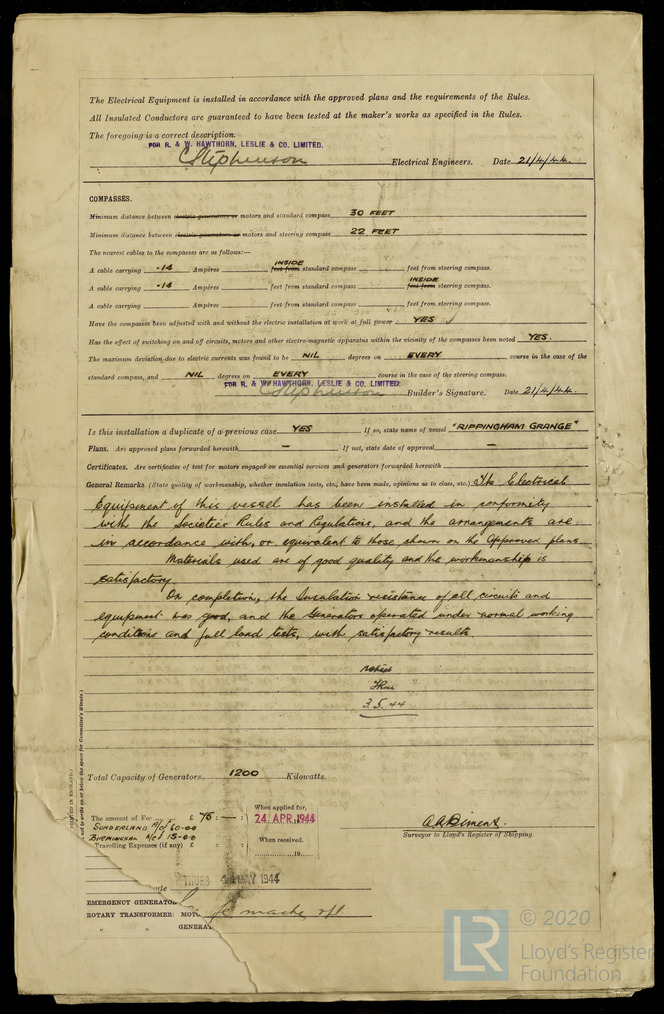 The Electrical Equipment is installed in accordance with the approved plans and the requirements of the Rules.
All Insulated Conductors are guaranteed to have been tested at the maker's works as specified in the Rules.
The foregoing is a correct description.
FOR R. & W. HAWTHORN, LESLIE & CO. LIMITED.
CStephenson Electrical Engineers. Date 21/4/44.
COMPASSES.
Minimum distance between electric generators or motors and standard compass 30 FEET
Minimum distance between electric generators or motors and steering compass 22 FEET
The nearest cables to the compasses are as follows:—
A cable carrying ·14 Ampères INSIDE feet from standard compass feet from steering compass.
A cable carrying ·14 Ampères feet from standard compass INSIDE feet from steering compass.
A cable carrying Ampères feet from standard compass feet from steering compass.
Have the compasses been adjusted with and without the electric installation at work at full power YES
Has the effect of switching on and off circuits, motors and other electro-magnetic apparatus within the vicinity of the compasses been noted YES.
The maximum deviation due to electric currents was found to be NIL degrees on EVERY course in the case of the
standard compass, and NIL degrees on EVERY course in the case of the steering compass.
FOR R. & W. HAWTHORN, LESLIE & CO. LIMITED.
CStephenson Builder's Signature. Date 21/4/44.
Is this installation a duplicate of a previous case YES If so, state name of vessel "RIPPINGHAM GRANGE"
Plans. Are approved plans forwarded herewith — If not, state date of approval —
Certificates. Are certificates of test for motors engaged on essential services and generators forwarded herewith
General Remarks (State quality of workmanship, whether insulation tests, etc., have been made, opinions as to class, etc.) The Electrical
Equipment of this vessel has been installed in conformity
with the Societies Rules and Regulations, and the arrangements are
in accordance with, or equivalent to those shown on the approved plans.
Materials used are of good quality and the workmanship is
satisfactory
On completion, the Insulation resistance of all circuits and
equipment was good, and the Generators operated under normal working
conditions and full load tests, with satisfactory results.
Noted
3.5.44
Total Capacity of Generators 1200 Kilowatts.
The amount of Fee £ 75 : — :
SUNDERLAND A/c 60-0-0
BIRMINGHAM A/c 15-0-0
Travelling Expenses (if any) £ : :
When applied for,
24 APR. 1944
When received.
19
Surveyor to Lloyd's Register of Shipping.
THURS 4 MAY 1944
EMERGENCY GENERATOR
ROTARY TRANSFORMER: MOTO
" " GENERAT
LR © 2020
Lloyd's Register
Foundation